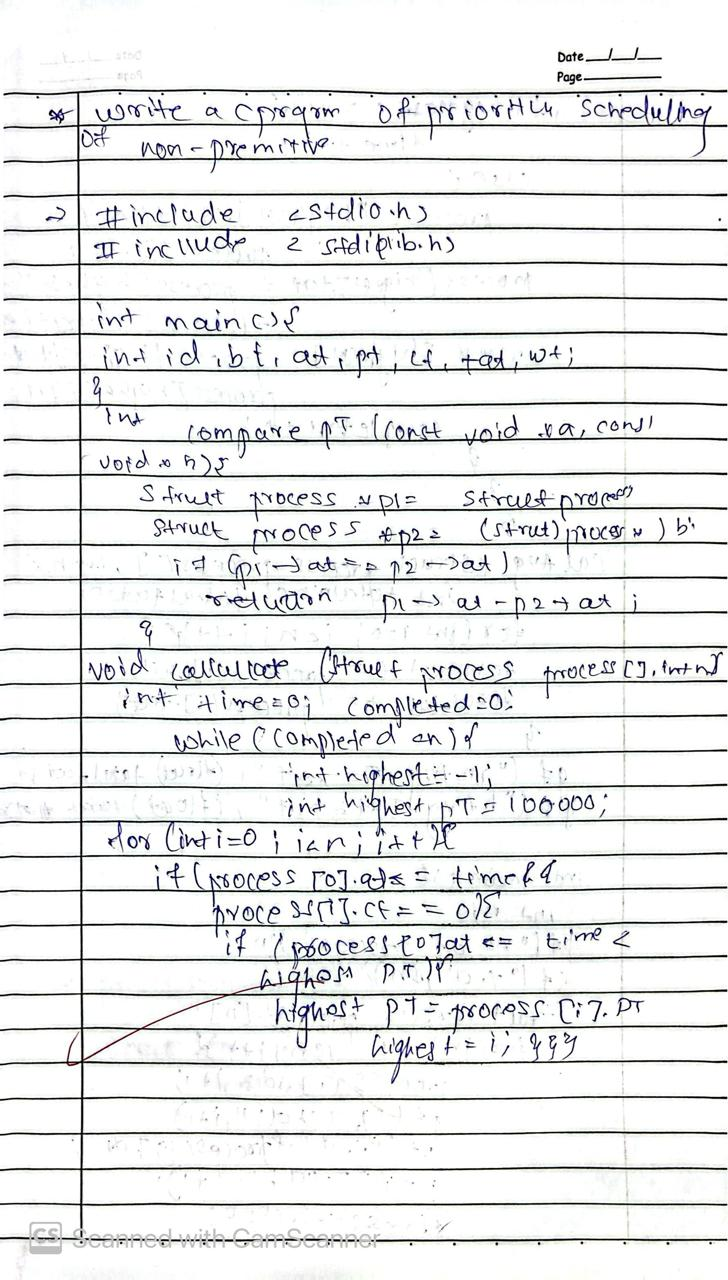 Date
Page
* write a cprqrm of priority scheduling
of non-premitive.
→ #include <stdio.h>
# incllude < stdlib.h>
int main(){
int id, bt, at, pt, ct, tat, wt;
}
int compare PT (const void *a, const
void * b){
Struct process *p1 = struct process
struct process *p2 = (strut) process *) b;
if (p1→at == p2→at)
return p1→ at - p2→ at ;
}
void callculate (struct process process[], int n){
int time=0; completed=0;
while (completed <n){
int highest = -1;
int highest pT = 100000;
for (int i=0 ; i<n; i++){
if (process [0].at<= time &&
process[i].ct == 0){
if (process [0]at <= time <
highest P.T){
highest PT = process [i]. PT
highest = i; }}}
CS Scanned with CamScanner